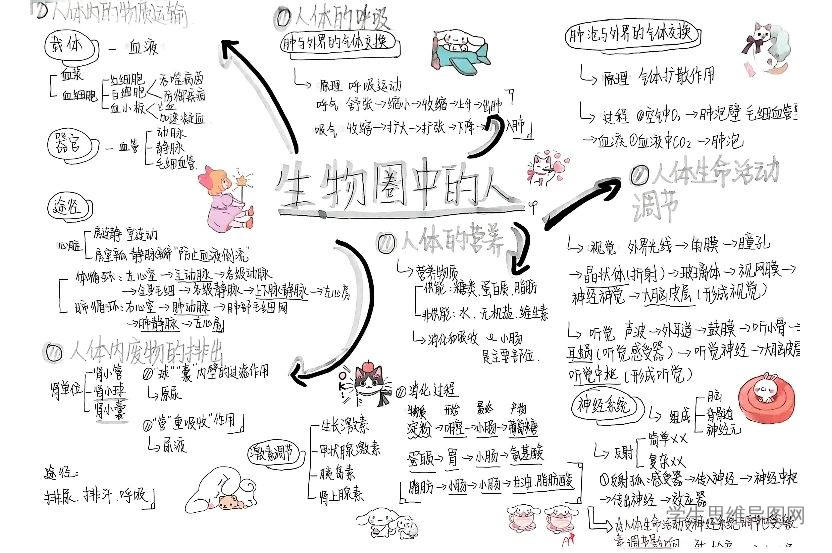 ①人体内的物质运输
载体 — 血液
血浆
血细胞
红细胞
白细胞
血小板
吞噬病菌
防御疾病
止血
加速凝血
器官 — 血管
动脉
静脉
毛细血管
途径
心脏
房连静 室连动
防止血液倒流
体循环：左心室→主动脉→各级动脉
→全身毛细→各级静脉→上下腔静脉→右心房
肺循环：右心室→肺动脉→肺部毛细血管网
→肺静脉→左心房
①人体内废物的排出
肾单位
肾小管
肾小球
肾小囊
①"球""囊"内壁的过滤作用
↳原尿
②"管"重吸收"作用
↳尿液
途径：
排尿、排汗、呼吸
激素调节
生长激素
甲状腺激素
胰岛素
肾上腺素
①人体的呼吸
肺与外界的气体交换
↳原理 呼吸运动
呼气 舒张→缩小→收缩→上升→出肺
吸气 收缩→扩大→扩张→下降→入肺
生物圈中的人
①人体的营养
↳营养物质
供能：糖类、蛋白质、脂肪
非供能：水、无机盐、维生素
↳消化和吸收 ↳小肠
是主要部位
②消化过程
开始 最终 产物
淀粉→口腔→小肠→葡萄糖
蛋白质→胃→小肠→氨基酸
脂肪→小肠→小肠→甘油、脂肪酸
肺泡与外界的气体交换
↳原理 气体扩散作用
↳过程 ①空气中O₂→肺泡壁 毛细血管壁
→血液 ①血液中CO₂→肺泡
①人体生命活动
调节
↳视觉 外界光线→角膜→瞳孔
→晶状体(折射)→玻璃体→视网膜→
神经视觉→大脑皮层(形成视觉)
↳听觉 声波→外耳道→鼓膜→听小骨→
耳蜗(听觉感受器)→听觉神经→大脑皮层
听觉中枢(形成听觉)
神经系统
↳组成
脑
脊髓
神经元
↳反射
简单××
复杂××
①反射弧：感受器→传入神经→神经中枢
→传出神经→效应器
学生思维导图网